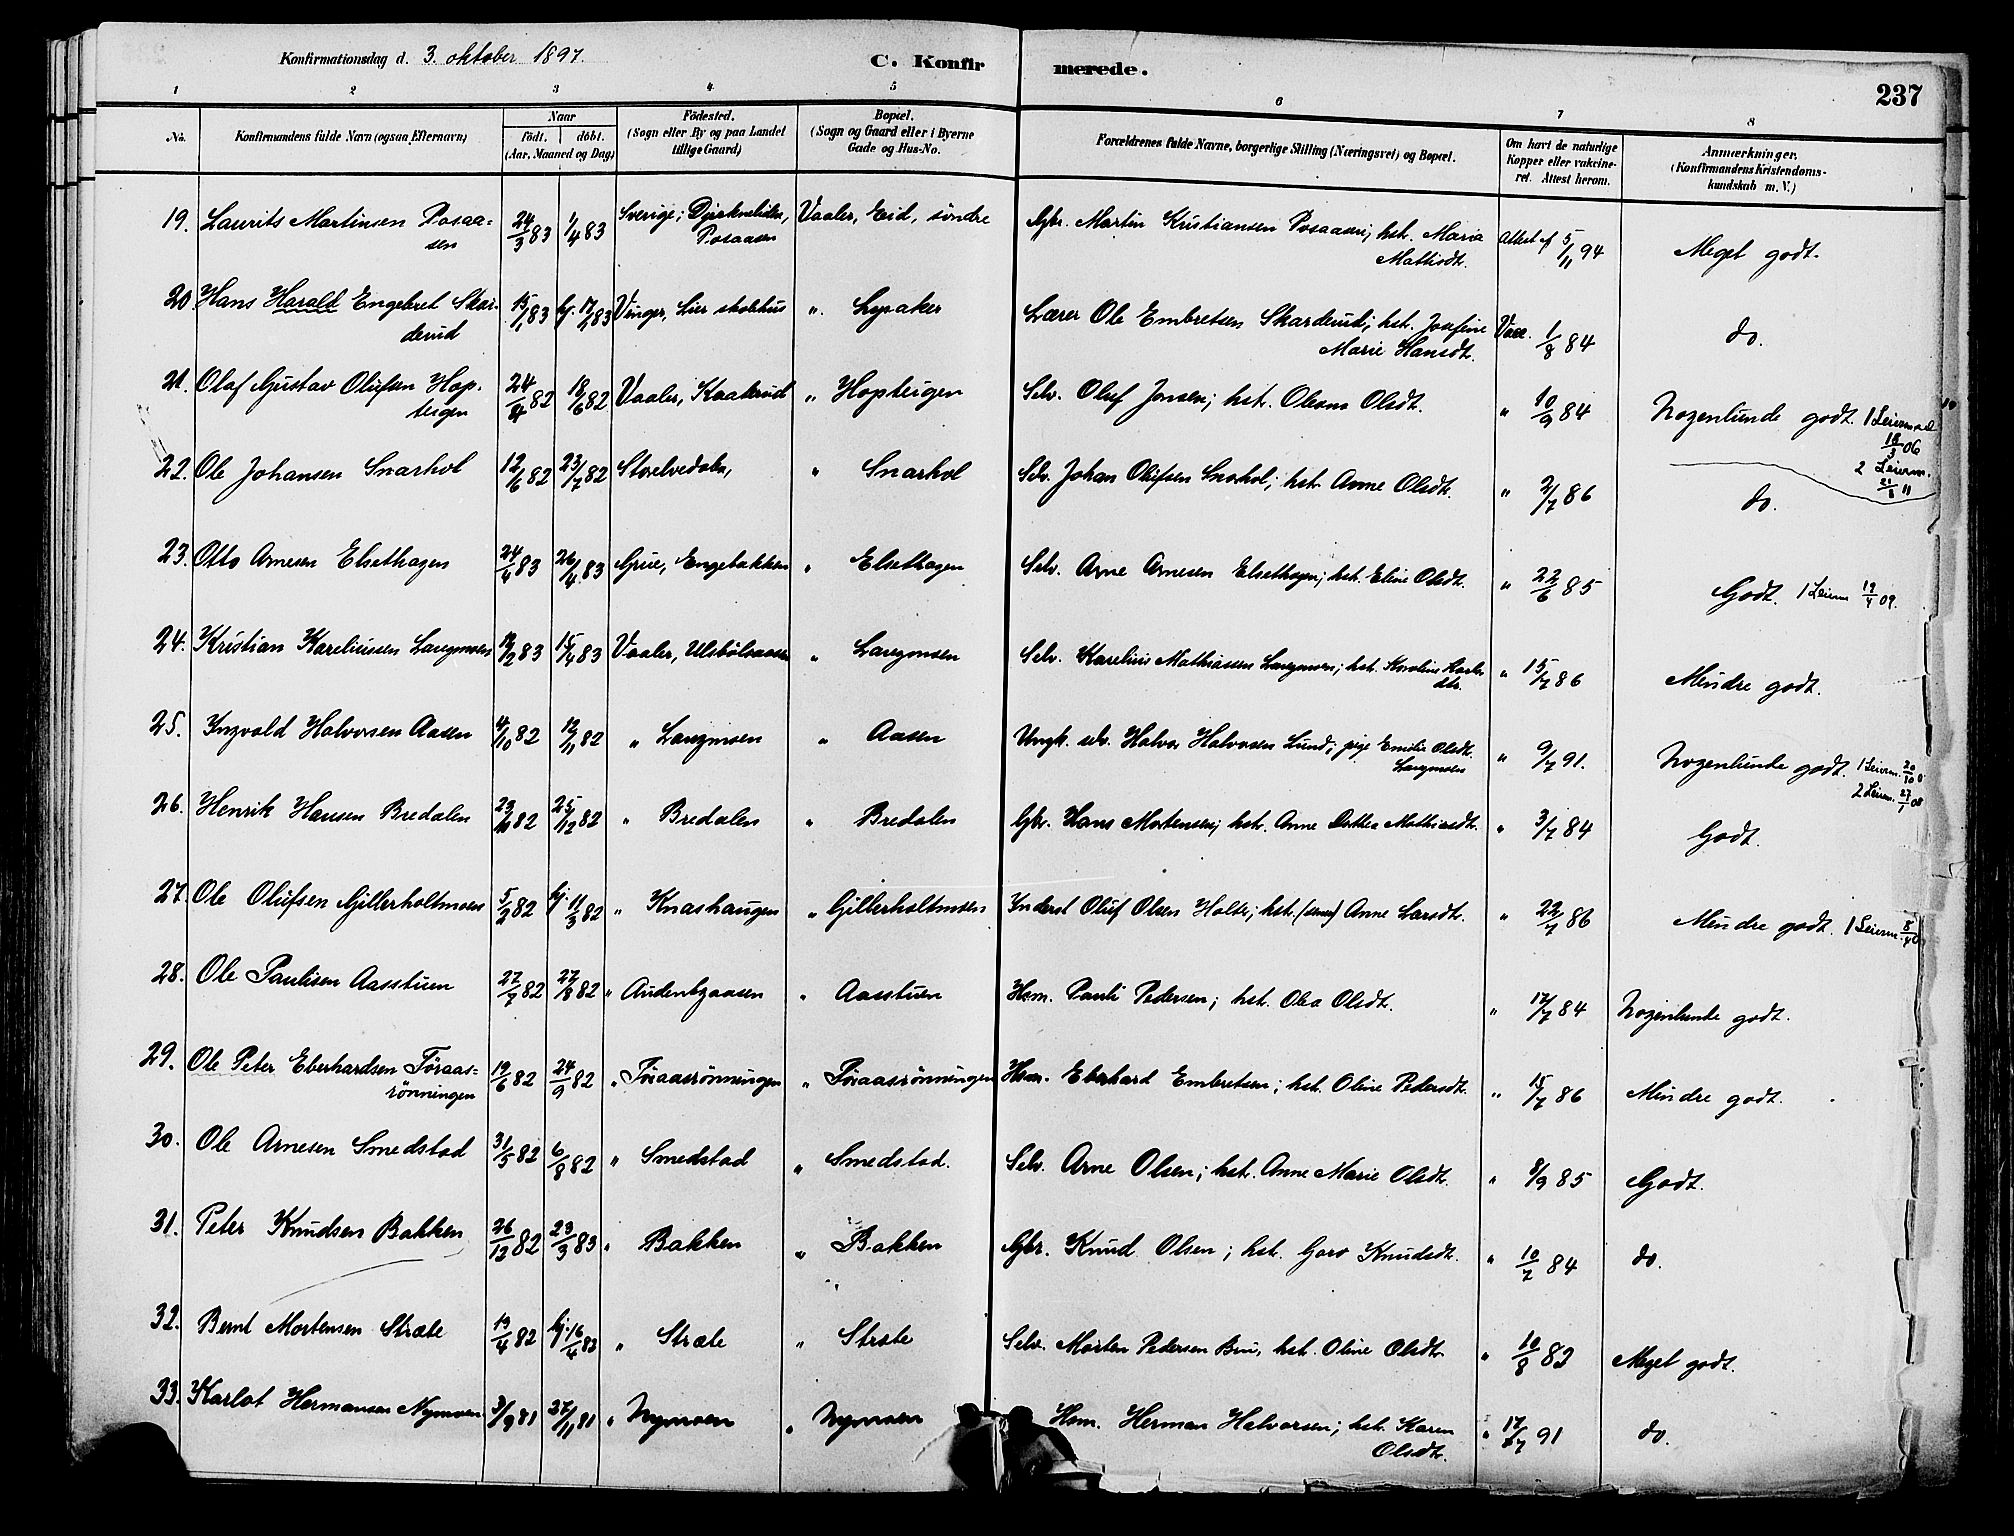 Konfirmationsdag d. 3. oktober 1897.
C. Konfirmerede.
237
1 2 3 4 5 6 7 8
No.
Konfirmandens fulde Navn (ogsaa Efternavn)
Naar
födt. döbt.
(Aar, Maaned og Dag)
Födested.
(Sogn eller By og paa Landet
tillige Gaard)
Bopæl.
(Sogn og Gaard eller i Byerne
Gade og Hus-No.
Forældrenes fulde Navne, borgerlige Stilling (Næringsvei) og Bopæl.
Om havt de naturlige
Kopper eller vakcine-
ret. Attest herom.
Anmærkninger.
(Konfirmandens Kristendoms-
kundskab m. V.)
19. Laurits Martinsen Posaa- 24/3 83 1/4 83 Sverige; Vaaler, Eid, söndre Gbr. Martin Kristiansen Posaasen; hst. Maria Attest af 5/11 94 Meget godt.
sen Posaasen Mathisdt.
20. Hans Harald Engebret Skar- 15/1 83 hj. 83 Vinger, Lier skolehus " Lysaker Lærer Ole Embretsen Skarderud; hst. Josefine Vacc. 1/8 84 do.
derud Marie Hansdt.
21. Olaf Gustav Olufsen Hop- 24/4 82 18/6 82 Vaaler, Kaaterud " Hopteigen Selv. Oluf Jonsen; hst. Oleana Olsdt. " 10/9 84 Nogenlunde godt. 1 Leierm.
teigen 18/3 06
2 Leierm.
22. Ole Johansen Snarhol 12/6 82 23/7 82 " Snarhol Selv. Johan Olufsen Snarhol; hst. Anne Olsdt. " 2/7 86 do.
23. Otto Arnesen Elsethagen 24/4 83 26/4 83 Grue, Engebakken " Elsethagen Selv. Arne Arnesen Elsethagen; hst. Eline Olsdt. " 22/6 85 Godt. 1 Leierm 09.
24. Kristian Kareliussen Langmoen 83 15/4 83 Vaaler, Ulsbölaasen " Langmoen Selv. Karelius Mathiassen Langmoen; hst. Karoline " 15/7 86 Mindre godt.
25. Ingvald Halvorsen Aasen 4/10 82 12/11 82 " Langmoen " Aasen Ungk. selv. Halvor Halvorsen Lund; pige Emilie Olsdt. " 9/7 91. Nogenlunde godt. 1 Leierm.
Langmoen 2 Leierm. 27/1 08
26. Henrik Hansen Bredalen 23/10 82 25/12 82 " Bredalen " Bredalen Gbr. Hans Mortensen; hst. Anne Dothea Mathiasdt. " 3/7 84 Godt.
27. Ole Olufsen Gillerholtmoen 5/2 82 hj. 11/3 82 " Knashaugen " Gillerholtmoen Inderst Oluf Olsen Holter; hst. Anne Larsdt. " 22/7 86 Mindre godt. 1 Leierm.
28. Ole Paulisen Aasstuen 27/7 82 27/8 82 " Audenbyaasen " Aasstuen Hsm. Pauli Pedersen; hst. Olea Olsdt. " 17/7 84 Nogenlunde godt.
29. Ole Peter Eberhardsen Töraas- 19/6 82 24/9 82 " Töraasrönningen " Töraasrönningen Hsm. Eberhard Embretsen; hst. Oline Pedersdt. " 15/7 86 Mindre godt.
rönningen
30. Ole Arnesen Smedstad 31/5 82 6/8 82 " Smedstad " Smedstad. Selv. Arne Olsen; hst. Anne Marie Olsdt. " 8/9 85 Godt.
31. Peter Knudsen Bakken 26/12 82 23/3 83 " Bakken " Bakken Gbr. Knud Olsen; hst. Goro Knudsdt. " 10/7 84 do.
32. Bernt Mortensen Stræte 13/4 82 hj. 16/4 82 " Stræte " Stræte Selv. Morten Pedersen Bru, hst. Oline Olsdt. " 10/8 82 Meget godt.
33. Karlot Hermansen Nymoen 3/9 81 27/11 81 " Nymoen " Nymoen Hsm. Herman Halvorsen; hst. Karen " 17/7 91 do.
Olsdt.